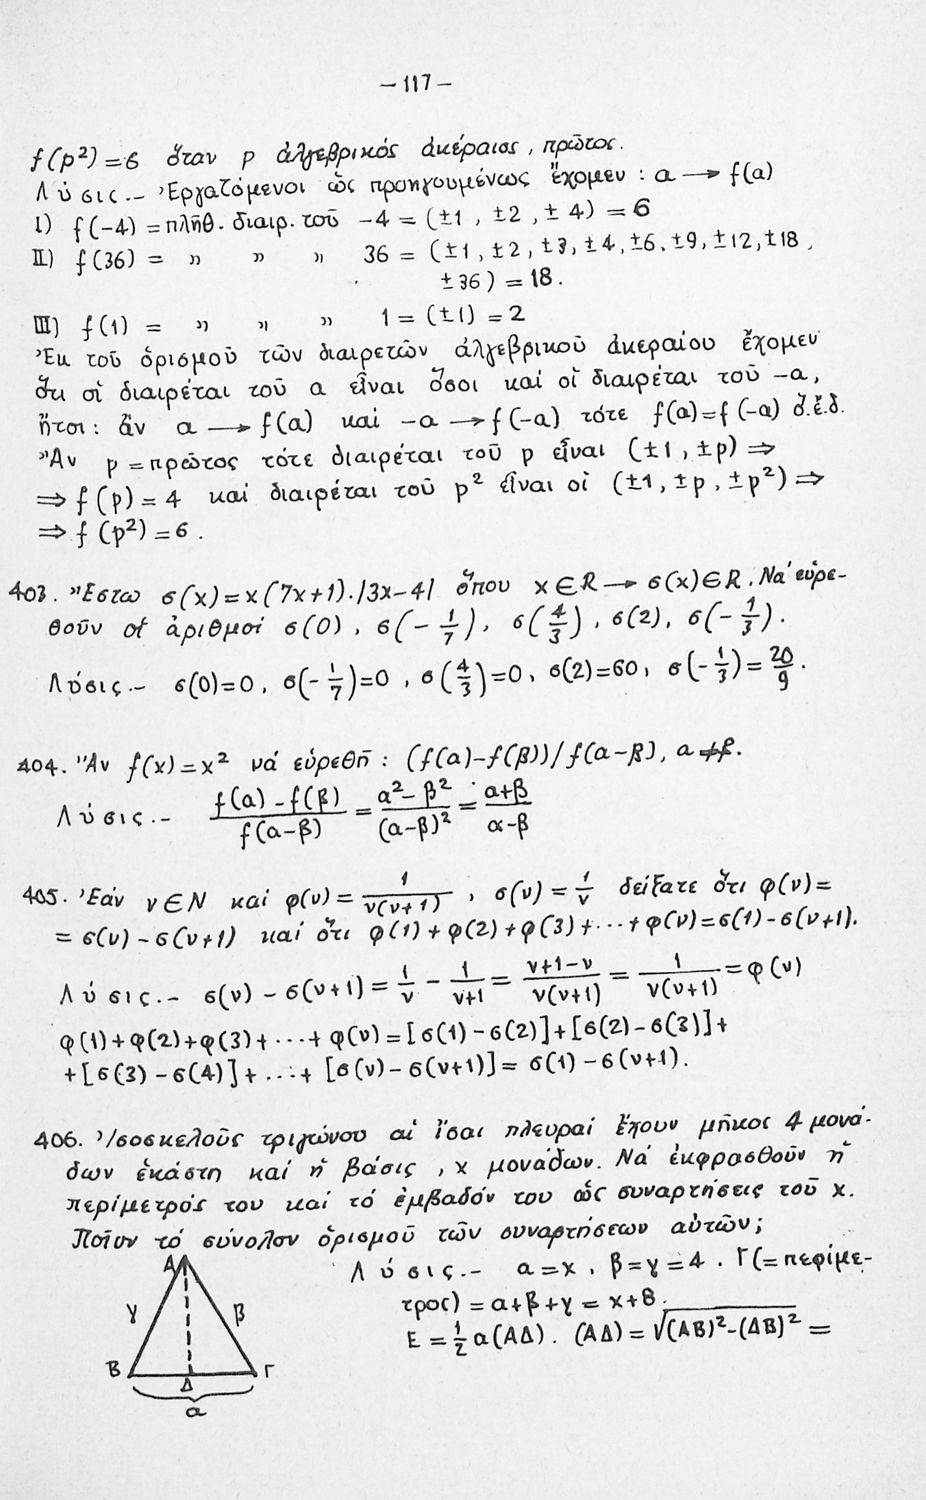 – 117 –
f(p²)=6 ὅταν p ἀλγεβρικός ἀκέραιος, πρῶτος.
Λύσις.– Ἐργαζόμενοι ὡς προηγουμένως ἔχομεν : α → f(α)
I) f(-4) = πλῆθ. διαιρ. τοῦ -4 = (±1, ±2, ±4) = 6
II) f(36) = » » » 36 = (±1, ±2, ±3, ±4, ±6, ±9, ±12, ±18,
±36) = 18.
III) f(1) = » » » 1 = (±1) = 2
Ἐκ τοῦ ὁρισμοῦ τῶν διαιρετῶν ἀλγεβρικοῦ ἀκεραίου ἔχομεν
ὅτι οἱ διαιρέται τοῦ α εἶναι ὅσοι καί οἱ διαιρέται τοῦ -α,
ἤτοι: ἄν α → f(α) καί -α → f(-α) τότε f(α)=f(-α) ὅ.ἔ.δ.
Ἄν p = πρῶτος τότε διαιρέται τοῦ p εἶναι (±1, ±p) ⇒
⇒ f(p) = 4 καί διαιρέται τοῦ p² εἶναι οἱ (±1, ±p, ±p²) ⇒
⇒ f(p²) = 6.
403. Ἔστω σ(x)=x(7x+1).|3x-4| ὅπου x∈R → σ(x)∈R. Νά εὑρε-
θοῦν οἱ ἀριθμοί σ(0), σ(-1/7), σ(4/3), σ(2), σ(-1/3).
Λύσις.– σ(0)=0, σ(-1/7)=0, σ(4/3)=0, σ(2)=60, σ(-1/3)=20/9.
404. Ἄν f(x)=x² νά εὑρεθῆ : (f(α)-f(β))/f(α-β), α≠β.
Λύσις.– f(α)-f(β)/f(α-β) = α²-β²/(α-β)² = α+β/α-β
405. Ἐάν ν∈N καί φ(ν) = 1/ν(ν+1), σ(ν) = 1/ν δείξατε ὅτι φ(ν)=
= σ(ν) - σ(ν+1) καί ὅτι φ(1)+φ(2)+φ(3)+...+φ(ν)=σ(1)-σ(ν+1).
Λύσις.– σ(ν) - σ(ν+1) = 1/ν - 1/ν+1 = ν+1-ν/ν(ν+1) = 1/ν(ν+1) = φ(ν)
φ(1)+φ(2)+φ(3)+...+φ(ν)=[σ(1)-σ(2)]+[σ(2)-σ(3)]+
+[σ(3)-σ(4)]+...+[σ(ν)-σ(ν+1)]= σ(1)-σ(ν+1).
406. Ἰσοσκελοῦς τριγώνου αἱ ἴσαι πλευραί ἔχουν μῆκος 4 μονά-
δων ἑκάστη καί ἡ βάσις, x μονάδων. Νά ἐκφρασθοῦν ἡ
περίμετρός του καί τό ἐμβαδόν του ὡς συναρτήσεις τοῦ x.
Ποῖον τό σύνολον ὁρισμοῦ τῶν συναρτήσεων αὐτῶν;
Λύσις.– α=x, β=γ=4. Γ(=περίμε-
τρος) = α+β+γ = x+8.
E = 1/2 α(ΑΔ). (ΑΔ) = √(ΑΒ)²-(ΔΒ)² =
Α
γ β
Β Δ Γ
α